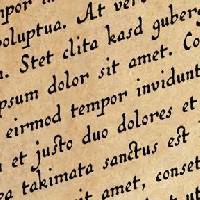 mpor in
voluptua. At ver
a. Stet clita kasd guberg
ipsum dolor sit amet. Co
eirmod tempor invidunt
et justo duo dolores et
ea takimata sanctus est
sit amet, conset